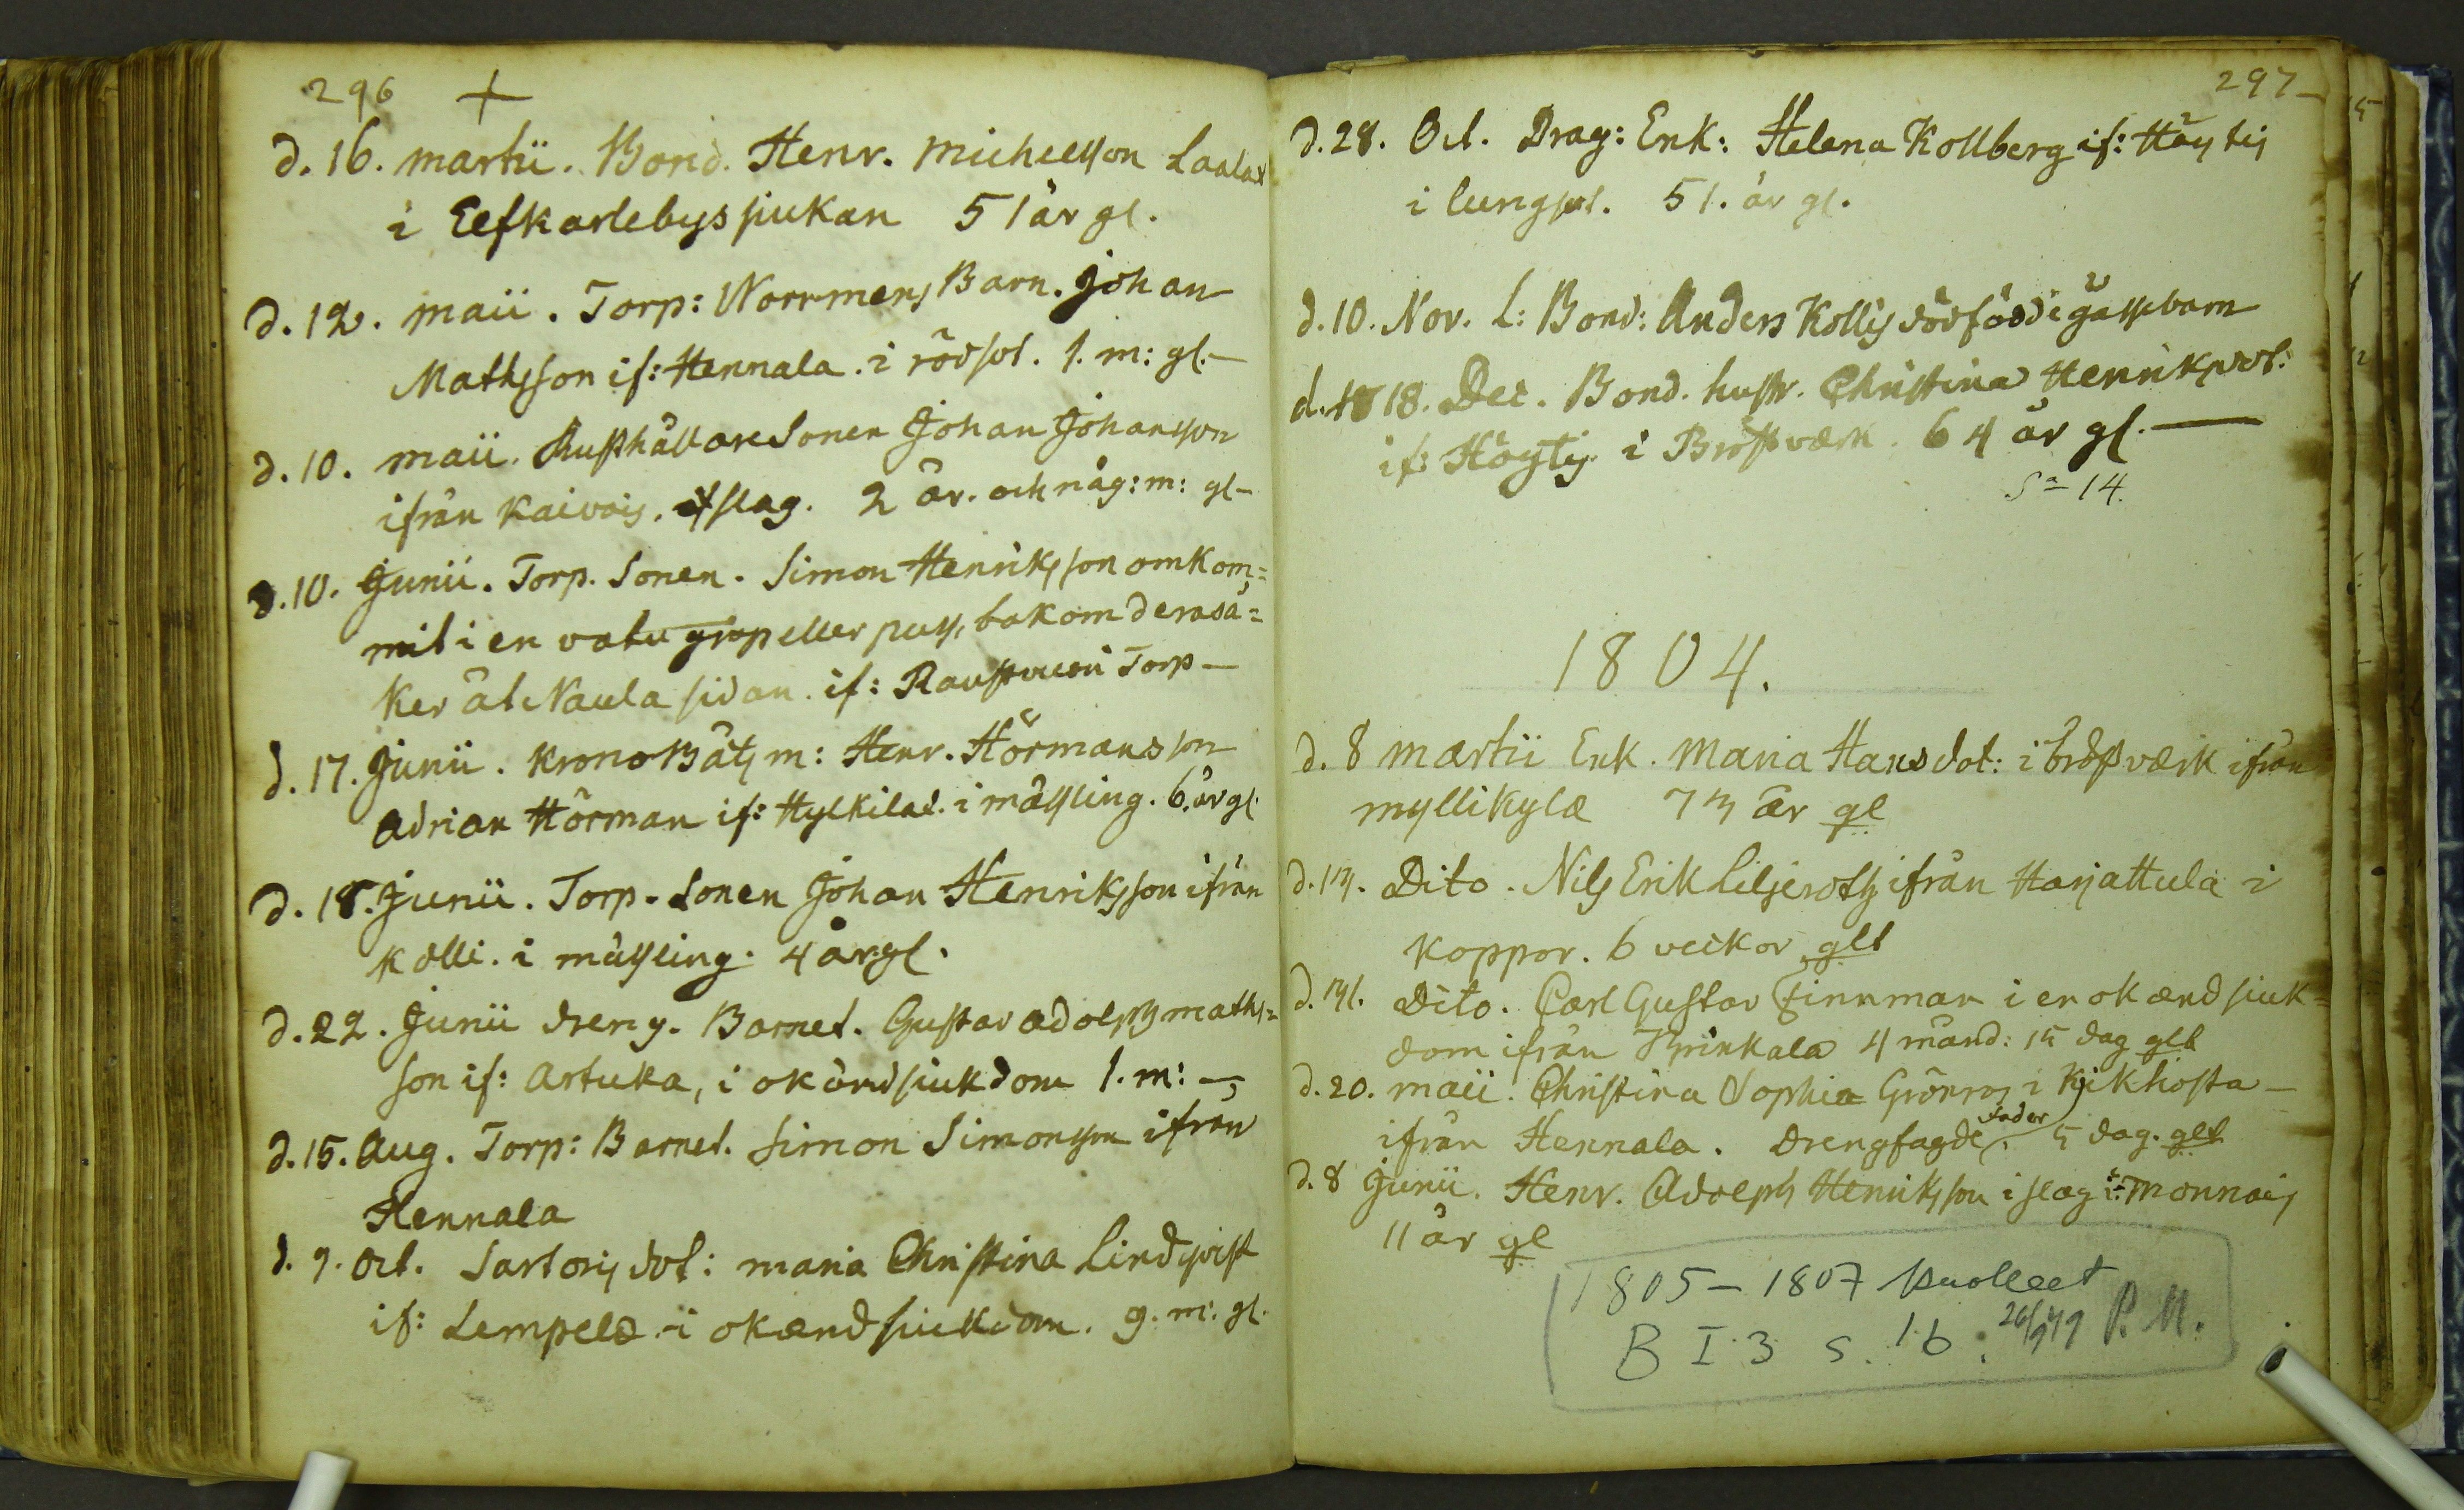 296 +
d. 16. martii. Bond. Henr. Michelsson Laalax
i Elfkarlebyssjukan 51 år gl.
d. 12. maii. Torp: Norrmens Barn. Johan
Mathsson if: Hennala. i rödsot. 1. m: gl.
d. 10. maii. Rusthållaresonen Johan Johansson
ifrån Kaivois. slag. 2 år. och någ: m: gl
d. 10. Junii. Torp. Sonen. Simon Henriksson omkom=
mit i en vatu grop eller puss, bakom deras å=
ker åt Naula sidan. if: Torp
d. 17. Junii. KronoBåtsm: Henr. Hörmans son
Adrian Hörman if: Hylkilad. i mässling. 6. år gl.
d. 18. Junii. Torp. Sonen Johan Henriksson ifrån
Kolli. i mässling. 4 år gl.
d. 22. Junii dreng. Barnet. Gustav Adolph Maths=
son if: Artuka, i okänd siukdom 1. m:
d. 15. Aug. Torp: Barnet. Simon Simonsson ifrån
Hennala
d. 9. Oct. Sartoris dot: Maria Christina Lindqvist
if: Lempelä i okænd siukdom. 9. m: gl.
297
d. 28. Oct. Drag: Enk: Helena Kollberg if: Höytis
i lungsot. 51. år gl.
d. 10. Nov. L: Bond: Anders Kollis dödfödde gossebarn
d. 18 18. Dec. Bond. hustr. Christina Henriksdot:
if: Höytis i Bröstværk. 64 år gl.
Sa 14.
1804.
d. 8 martii Enk. Maria Hansdot: i bröstværk ifrån
myllikylæ 73 år gl
d. 13. Dito. Nils Erik Liljeroth ifrån Harjattula i
Koppor. 6 veckor glt
d. 31. Dito. Carl Gustav Finnman i en okænd siuk=
dom ifrån Brinkala 4 månd: 15 dag glt
d. 20. maii. Christina Sophia Grönros i Kikhosta
ifrån Hennala. Drengfogde fader 5 dag. glt
d. 8 Junii. Henr. Adolph Henriksson i slag if: monnois
11 år gl
1805 – 1807 kuolleet
B I 3 s. 16. 26/9 49 P. M.